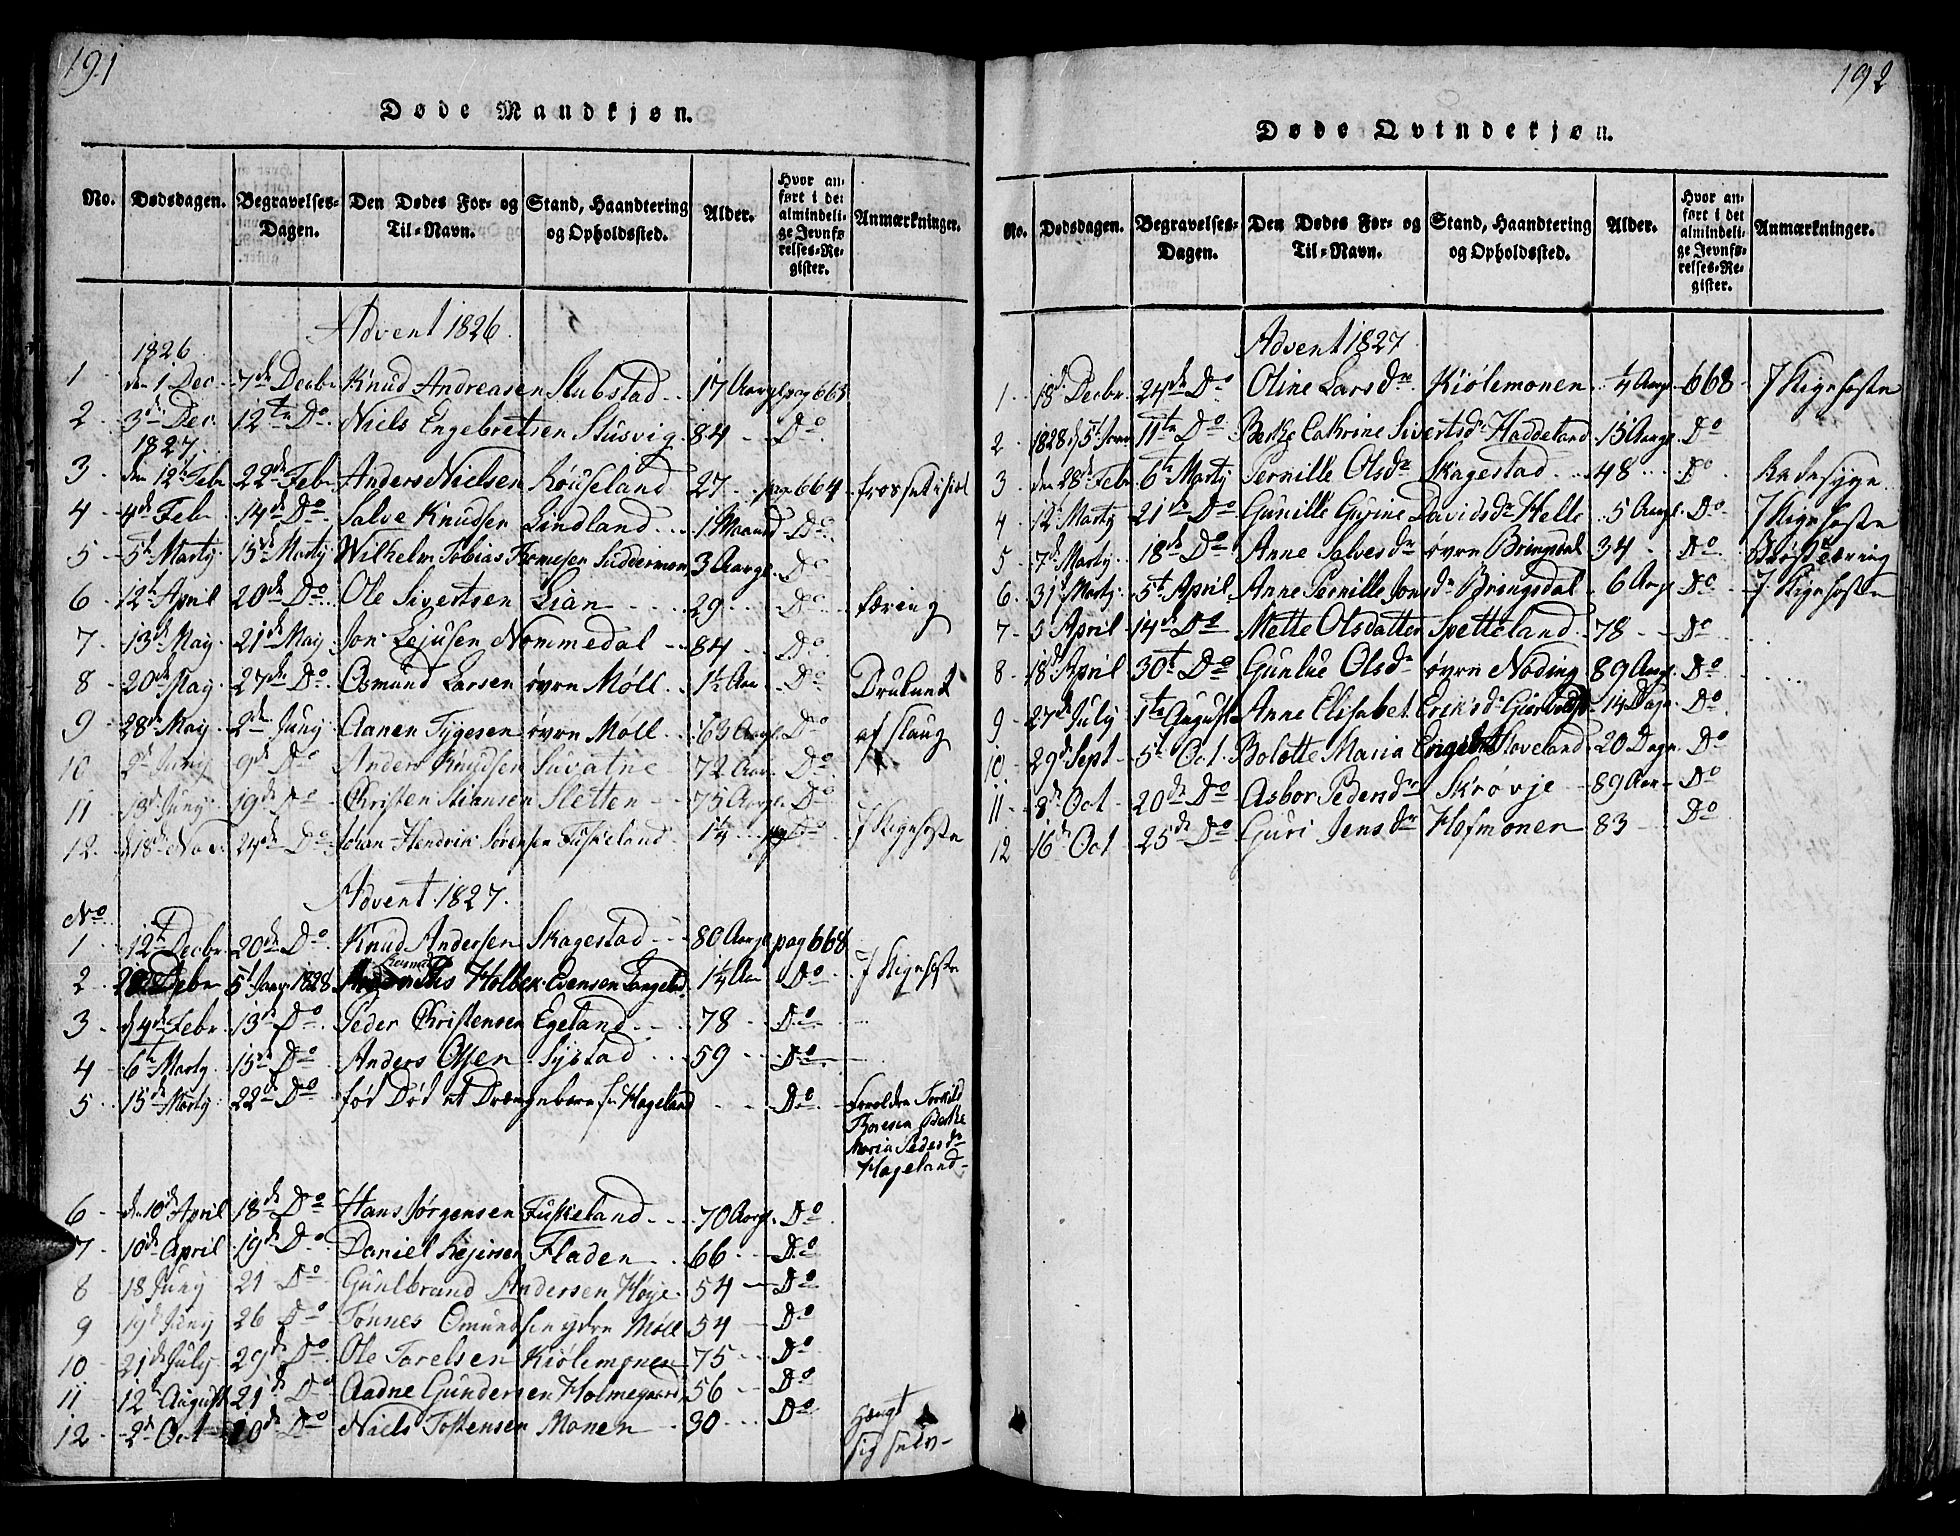 191
Døde Mandkjøn.
No. Dødsdagen. Begravelses-Dagen. Den Dødes For- og Til-Navn. Stand, Haandtering og Opholdssted. Alder. Hvor anført i det almindelige Jevnførelses-Register. Anmærkninger.
Advent 1826.
1826
1 den 1 Dec 7de Decbr Knud Andreasen Stubstad 17 Aar pag 663
2 3de Dec 12te Do Niels Engebretsen Stusvig 84 Do
1827
3 den 12te Febr 22de Febr Anders Nielsen Røuseland 27 pag 664
4 4de Feb 14de Do Salve Knudsen Lindland 1 Maaned Do
5 5te Marty 15de Marty Wilhelm Tobias Tomesen Sudderman 3 Aar Do
6 12te April 20de Do Ole Sivertsen Lian 29 Do Tæring
7 13de May 21de May Jon Lejusen Nommedal 84 Do
8 20de May 27de Do Osmund Larsen øvre Møll 1½ Aar Do
9 28de May 2den Juny Aanen Tygesen øvre Møll 63 Aar Do
10 2den Juny 9de Do Anders Knudsen 72 Aar Do
11 13de Juny 19de Do Christen Stiansen Sletten 75 Aar Do
12 d 18de Nov 24de Do Johan Hendrik Sørensen Fuskeland 1¼ Do I Kighoste
Advent 1827.
No
1 12te Decbr 20de Do Knud Andersen Skagestad 80 Aar pag 668
2 5te Janr 1828 Holbek Evensen Langeland 1¼ Aar Do I Kighoste
3 d 4de Febr 13de Do Peder Christensen Egeland 78 Do
4 6te Marty 15de Do Anders Olsen Systad 59 Do
5 15de Marty 22de Do fød Død et Drængebarn fra Hageland Do Forældre Torkild
Boresen
Maria Pedersdr
Hageland
6 den 10de April 18de Do Hans Jørgensen Fuskeland 70 Aar Do
7 10de April 19de Do Daniel Rejersen Fladen 66 Do
8 18 Juny 21 Do Gunlbrand Andersen Høye 54 Do
9 19de Juny 26 Do Tønnes Omundsen ydre Møll 54 Do
10 21de July 29de Do Ole Torelsen Kiølemonen 75 Do
11 12te August 21de Do Aadne Gundersen Holmegaard 56 Do
12 2den Oct 10de Do Niels Tostensen Monen 30 Do Hængt
sig selv
192
Døde Qvindekjøn.
No. Dødsdagen. Begravelses-Dagen. Den Dødes For- og Til-Navn. Stand, Haandtering og Opholdssted. Alder. Hvor anført i det almindelige Jevnførelses-Register. Anmærkninger.
Advent 1827
1 18de Decbr 24de Do Oline Larsdr Kiølemonen ¼ Aar 668 I Kighoste
2 1828 d 5te Janr 11te Do Catrine Sivertsdr Haddeland 15 Aar Do
3 den 28de Febr 6te Marty Pernille Olsdr Skagestad 48 Do Radesyge
4 12te Marty 21de Do Gunille Gurine Davidsdr Helle 5 Aar Do I Kighoste
5 7de Marty 18de Do Anne Salvesdr øvre Bringsdal 34 Do Brysttæring
6 31de Marty 5te April Anne Pernille Jonsdr Bringsdal 6 Aar Do I Kighoste
7 5 April 14de Do Mette Olsdatter Spetteland 78 Do
8 18de April 30te Do Gunlue Olsdr øvre Nøding 89 Aar Do
9 27de July 1te August Anne Elisabet Eriksdr 14 Dage Do
10 29de Sept 5te Oct Bolette Maria Koveland 20 Dage Do
11 8de Oct 20de Do Asbor Pedersdr Skrøvje 89 Aar Do
12 16de Oct 25de Do Guri Jensdr Hofmonen 83 Do